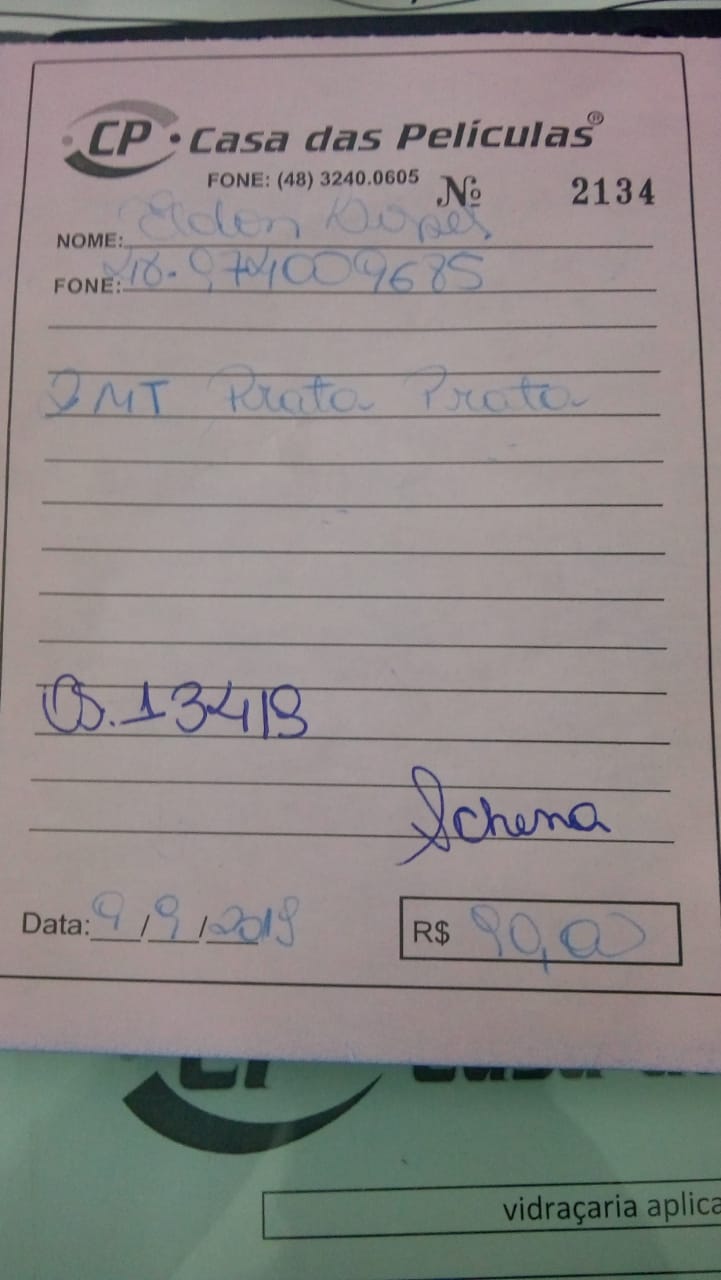 CP • Casa das Películas®
FONE: (48) 3240.0605 Nº 2134
NOME: Eldon Lopes
FONE: 48-974009685
2MT Prata Prata
OS.13419
Schena
Data: 9/9/2019 R$ 90,00
vidraçaria aplica